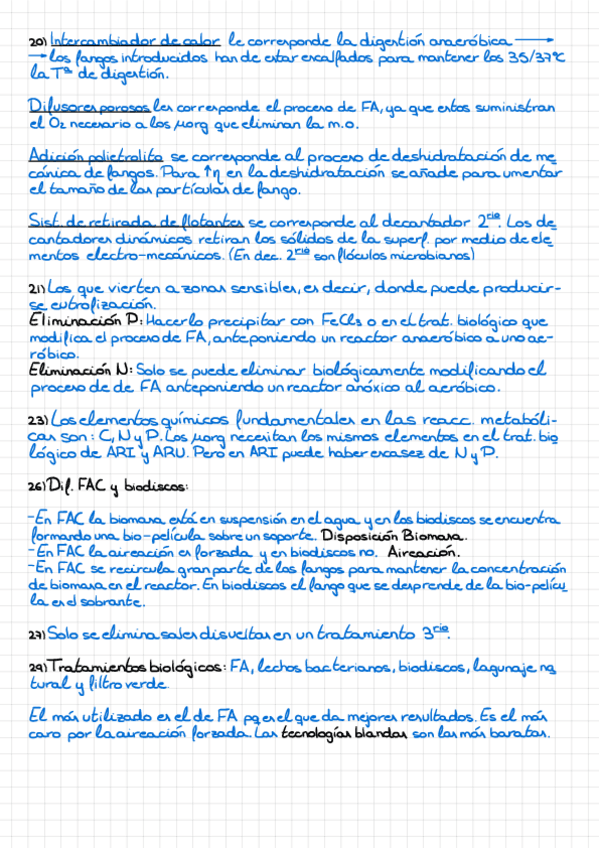 20) Intercambiador de calor le corresponde la digestión anaeróbica →
→ los fangos introducidos han de estar escalfados para mantener los 35/37ºC
la Tª de digestión.
Difusores porosos les corresponde el proceso de FA, ya que estos suministran
el O2 necesario a los µorg que eliminan la m.o.
Adición polietrolito se corresponde al proceso de deshidratación de me
cánica de fangos. Para ↑η en la deshidratación se añade para umentar
el tamaño de las partículas de fango.
Sist. de retirada de flotantes se corresponde al decantador 2rio. Los de
cantadores dinámicos retiran los sólidos de la superf. por medio de ele
mentos electro-mecánicos. (En dec. 2rio son flóculos microbianos)
21) Los que vierten a zonas sensibles, es decir, donde puede producir-
se eutrofización.
Eliminación P: Hacerlo precipitar con FeCl3 o en el trat. biológico que
modifica el proceso de FA, anteponiendo un reactor anaeróbico a uno ae-
róbico.
Eliminación N: Solo se puede eliminar biológicamente modificando el
proceso de de FA anteponiendo un reactor anóxico al aeróbico.
23) Los elementos químicos fundamentales en las reacc. metabóli-
cas son: C, N y P. Los µorg necesitan los mismos elementos en el trat. bio
lógico de ARI y ARU. Pero en ARI puede haber escasez de N y P.
26) Dif. FAC y biodiscos:
-En FAC la biomasa está en suspensión en el agua y en los biodiscos se encuentra
formando una bio-película sobre un soporte. Disposición Biomasa.
-En FAC la aireación es forzada y en biodiscos no. Aireación.
-En FAC se recircula gran parte de los fangos para mantener la concentración
de biomasa en el reactor. En biodiscos el fango que se desprende de la bio-pelícu
la es el sobrante.
27) Solo se elimina sales disueltas en un tratamiento 3rio.
29) Tratamientos biológicos: FA, lechos bacterianos, biodiscos, lagunaje na
tural y filtro verde.
El más utilizado es el de FA pq es el que da mejores resultados. Es el más
caro por la aireación forzada. Las tecnologías blandas son las más baratas.